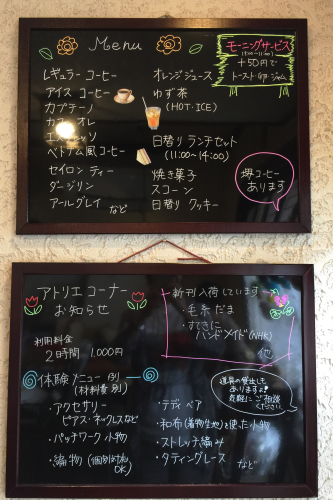 Menu
モーニングサービス
+50円で
トースト・卵・ジャム
レギュラー コーヒー
アイス コーヒー
カプチーノ
カフェオレ
エスプレッソ
ベトナム風コーヒー
セイロン ティー
ダージリン
アールグレイ など
オレンジジュース
ゆず茶
(HOT・ICE)
日替り ランチセット
(11:00~14:00)
焼き菓子
スコーン
日替り クッキー
コーヒー
あります
アトリエ コーナー
お知らせ
利用料金
2時間 1,000円
新刊入荷しています
・毛糸だま
・すてきに
ハンドメイド(NHK)
他
体験メニュー 例)
(材料費別)
・アクセサリー
ピアス・ネックレスなど
・パッチワーク小物
・編物(個別対応OK)
道具の貸出しも
ありますよ
気軽にご相談
ください
・テディベア
・和布(着物生地)を使った小物
・ストレッチ編み
・タティングレース など